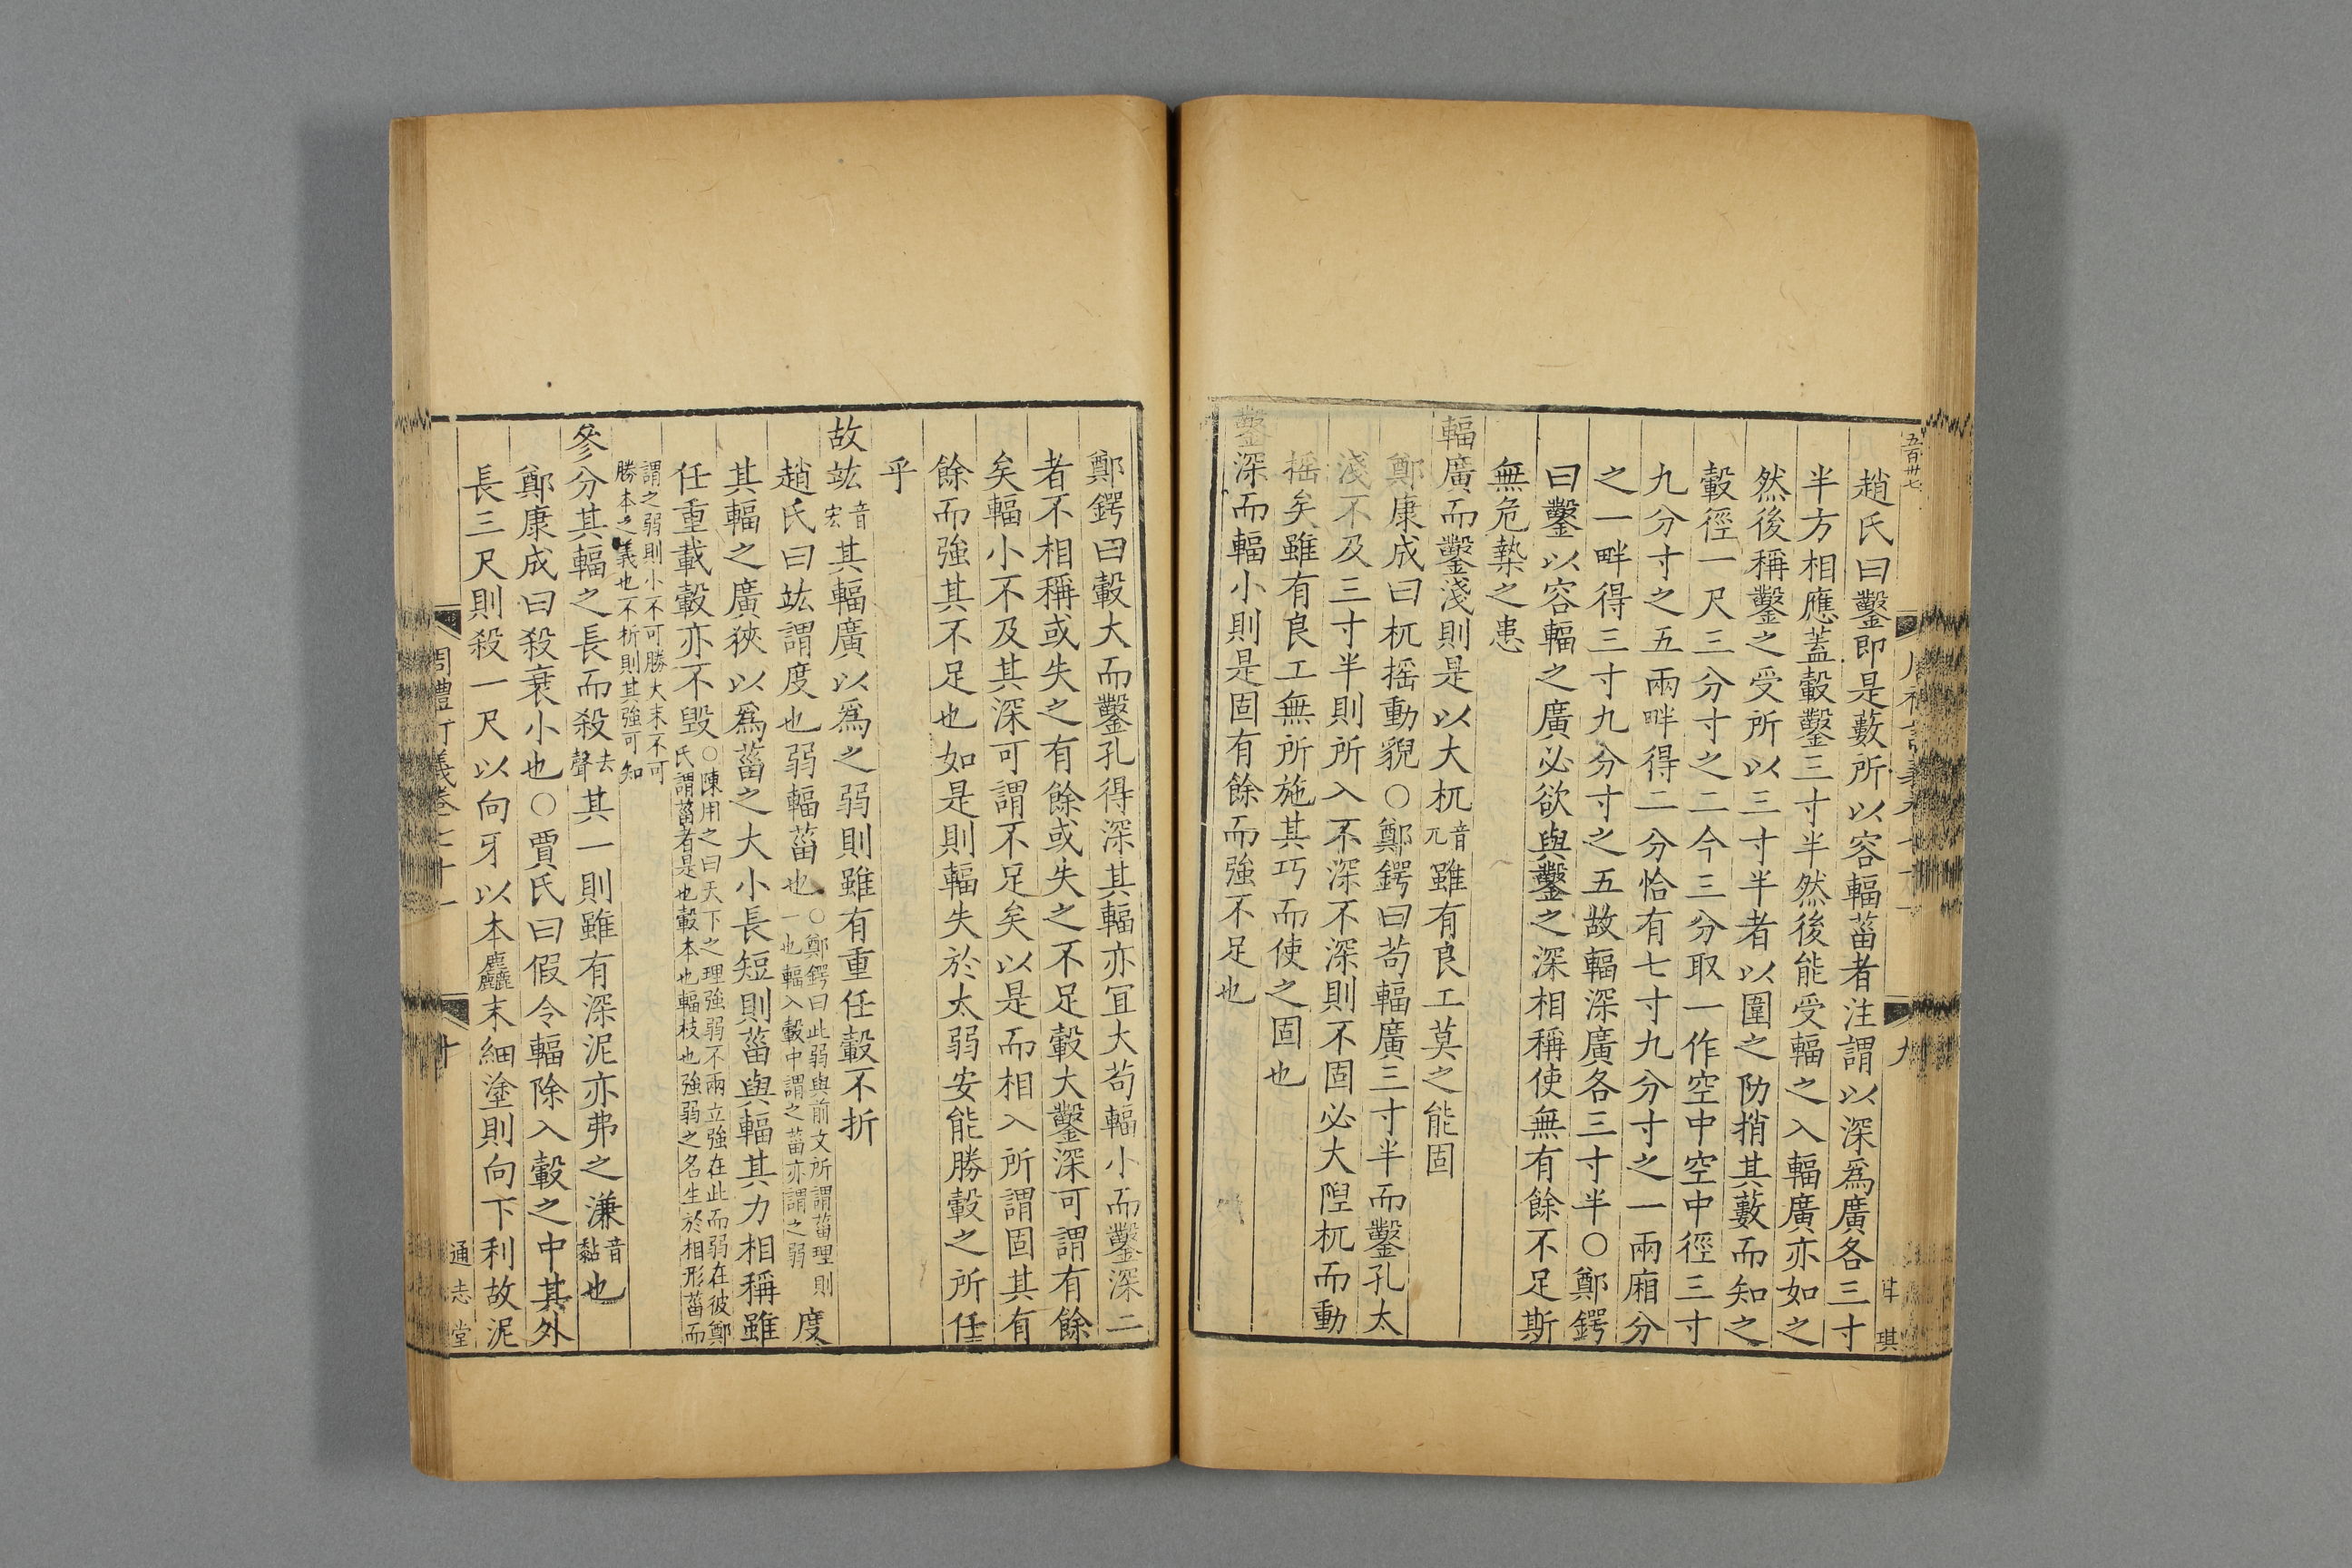 五百卅七
趙氏曰鑿即是藪所以容輻菑者注謂以深爲廣各三寸
半方相應蓋轂鑿三寸半然後能受輻之入輻廣亦如之
然後稱鑿之受所以三寸半者以圍之阞捎其藪而知之
轂徑一尺三分寸之二今三分取一作空中空中徑三寸
九分寸之五兩畔得二分恰有七寸九分寸之一兩廂分
之一畔得三寸九分寸之五故輻深廣各三寸半○鄭鍔
曰鑿以容輻之廣必欲與鑿之深相稱使無有餘不足斯
無危槷之患
輻廣而鑿淺則是以大杌音兀雖有良工莫之能固
鄭康成曰杌摇動貌○鄭鍔曰苟輻廣三寸半而鑿孔太
淺不及三寸半則所入不深不深則不固必大隉杌而動
摇矣雖有良工無所施其巧而使之固也
鑿深而輻小則是固有餘而強不足也
鄭鍔曰轂大而鑿孔得深其輻亦宜大苟輻小而鑿深二
者不相稱或失之有餘或失之不足轂大鑿深可謂有餘
矣輻小不及其深可謂不足矣以是而相入所謂固其有
餘而強其不足也如是則輻失於太弱安能勝轂之所任
乎
故竑音宏其輻廣以爲之弱則雖有重任轂不折
趙氏曰竑謂度也弱輻菑也○鄭鍔曰此弱與前文所謂菑理則一也輻入轂中謂之菑亦謂之弱度
其輻之廣狹以爲菑之大小長短則菑與輻其力相稱雖
任重載轂亦不毁○陳用之曰天下之理強弱不兩立強在此而弱在彼鄭氏謂菑者是也轂本也輻枝也強弱之名生於相形菑而
謂之弱則小不可勝大末不可勝本之義也不折則其強可知
參分其輻之長而殺去聲其一則雖有深泥亦弗之溓音黏也
鄭康成曰殺衰小也○賈氏曰假令輻除入轂之中其外
長三尺則殺一尺以向牙以本麤末細塗則向下利故泥
周禮訂義卷七十一
十
通志堂